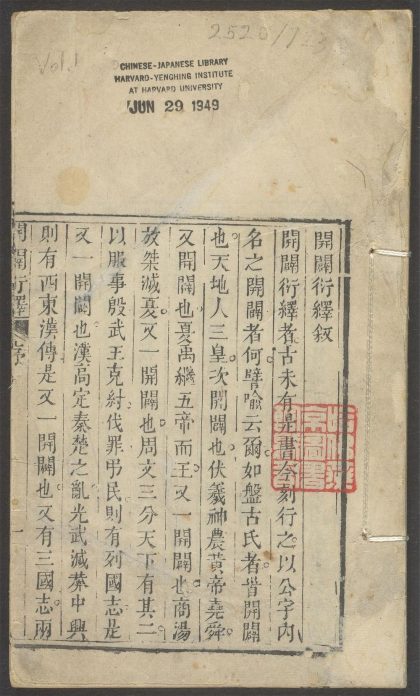 2520/7
Vol. 1
CHINESE-JAPANESE LIBRARY
HARVARD-YENCHING INSTITUTE
AT HARVARD UNIVERSITY
JUN 29 1949
開闢衍繹敘
開闢衍繹者古未有是書今刻行之以公宇内
名之開闢者何譬喻云爾如盤古氏者皆開闢
也天地人三皇次開闢也伏羲神農黃帝堯舜
又開闢也夏禹繼五帝而王又一開闢也商湯
放桀滅夏又一開闢也周文三分天下有其二
以服事殷武王克紂伐罪弔民則有列國志是
又一開闢也漢高定秦楚之亂光武滅莽中興
則有西東漢傳是又一開闢也又有三國志兩
開闢衍繹 序 一